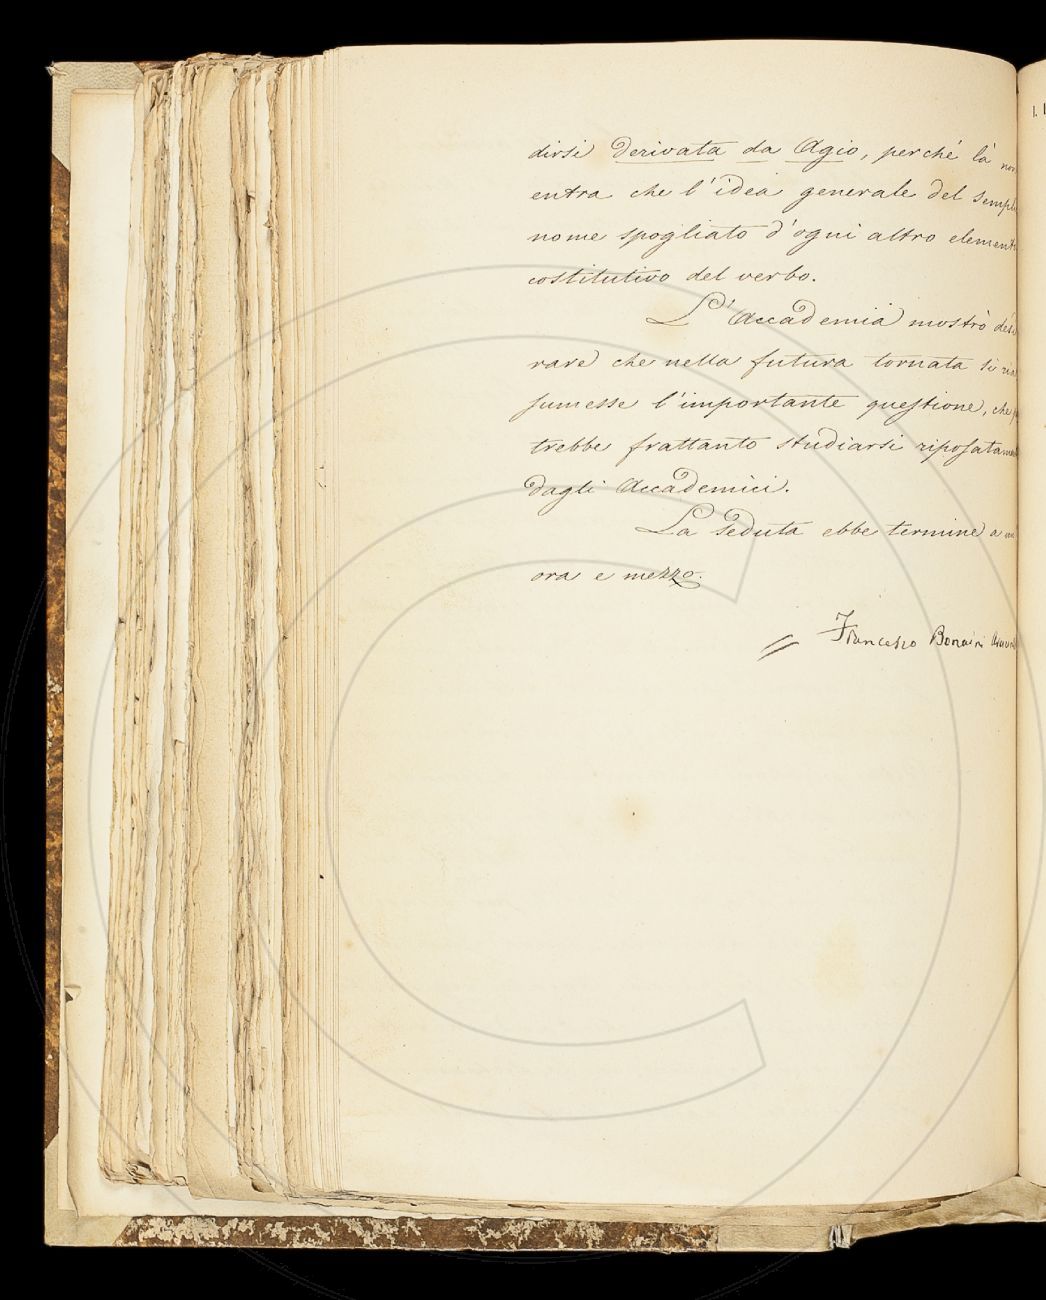 dirsi derivata da Agio, perché là non
entra che l'idea generale del sempli
nome spogliato d'ogni altro element
costitutivo del verbo.
L'Accademia mostrò desi
rare che nella futura tornata si rias
sumesse l'importante questione, che po
trebbe frattanto studiarsi riposatamen
dagli Accademici.
La seduta ebbe termine a un
ora e mezzo.
Francesco Bonaini